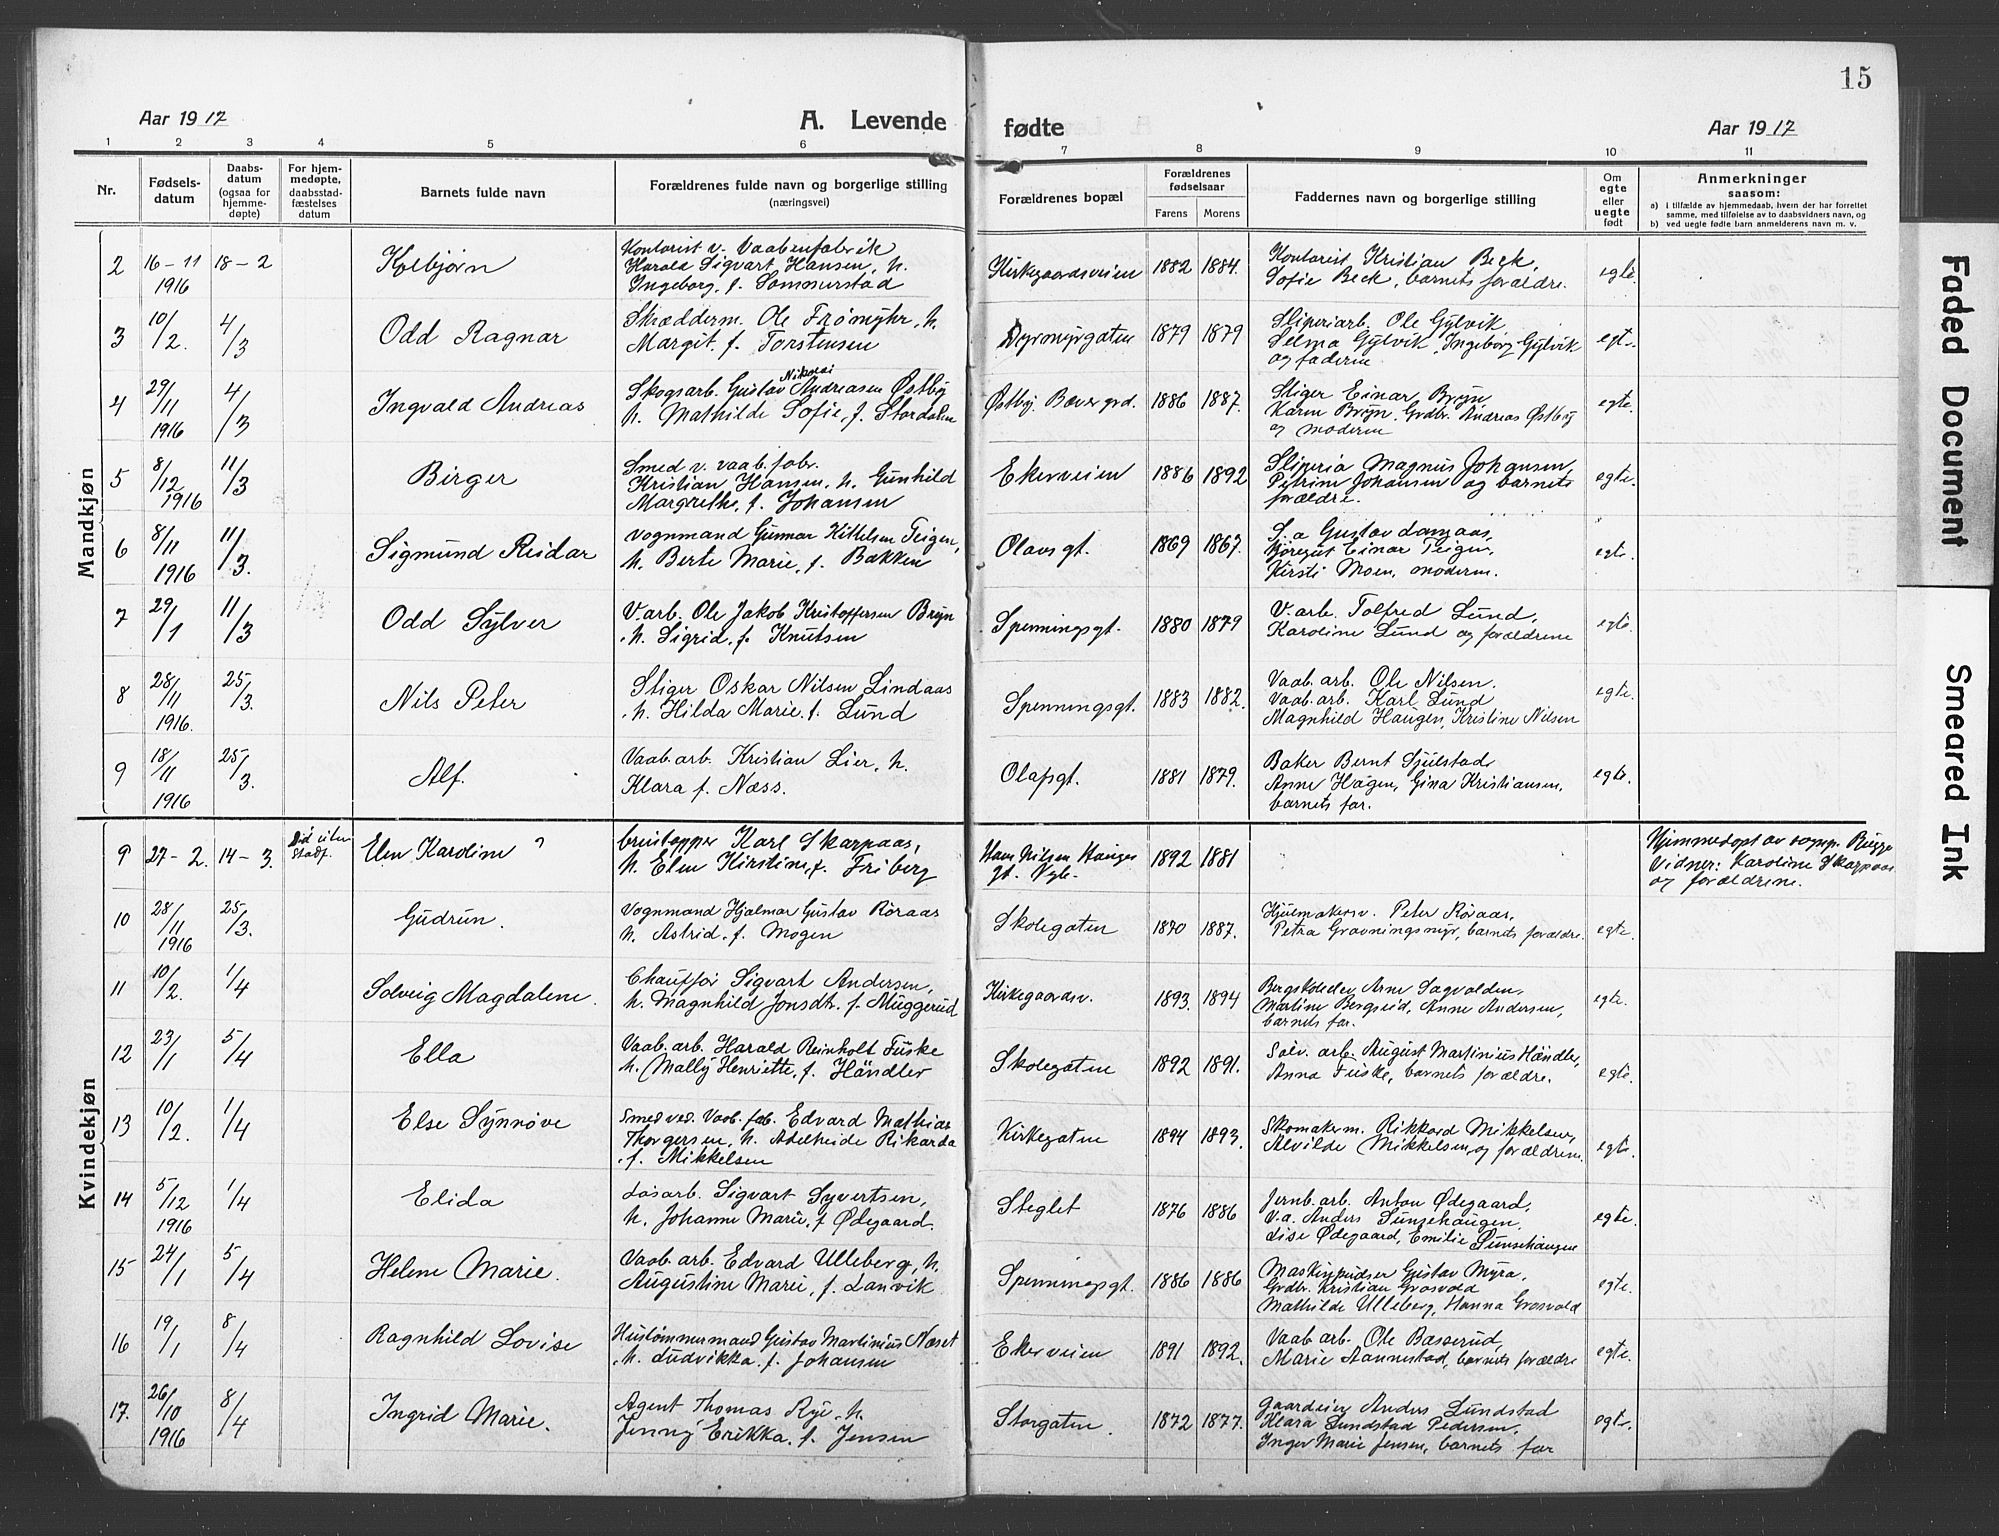 15
Aar 1917 A. Levende fødte Aar 1917
1 2 3 4 5 6 7 8 9 10 11
Nr. Fødselsdatum Daabsdatum (ogsaa for hjemmedøpte) For hjemmedøpte, daabsstadfæstelses datum Barnets fulde navn Forældrenes fulde navn og borgerlige stilling (næringsvei) Forældrenes bopæl Forældrenes fødselsaar Farens Morens Faddernes navn og borgerlige stilling Om egte eller uegte født Anmerkninger saasom:
a) i tilfælde av hjemmedaab, hvem der har forrettet samme, med tilføielse av to daabsvidners navn, og
b) ved uegte fødte barn anmelderens navn m. v.
Mandkjøn
2 16-11 1916 18-2 Kolbjørn Kontorist v. Vaabenfabrik
Harald Sigvart Hansen, h.
Ingeborg, f. Sommerstad
Kirkegaardsveien 1882 1884. Kontorist Kristian Beck,
Sofie Beck, barnets forældre. egte.
3 10/2. 4/3 Odd Ragnar Skrædderm. Ole Frømyhr, h.
Margit. f. Torstensen
Dyrmyrgaten 1879 1879 Sliperiarb. Ole Gylvik
Selma Gylvik, Ingeborg Gylvik
og faderne egte.
4 29/11 1916 4/3 Ingvald Andreas Skogsarb. Gustav Nikolai Andreasen Østby
h. Mathilde Sofie, f. Stordalen
Østby. Bævergrd. 1886 1887. Stiger Einar Bryn,
Karen Bryn. Grdbr. Andreas Østby
og moderne egte.
5 8/12 1916 11/3 Birger Smed v. vaab.fabr.
Kristian Hansen, h. Gunhild
Margrethe, f. Johansen
Ekerveien 1886 1892 Sliperia Magnus Johansen,
Petrine Johansen og barnets
forældre. egte.
6 8/11 1916 11/3. Sigmund Reidar Vognmand Gunnar Kittelsen Teigen,
h. Berte Marie, f. Bakken
Olavsgt. 1869 1867. S.a Gustav
Einar Teigen,
Kirsti Moen, moderne. egte.
7 29/1 11/3 Odd Sylver V.arb. Ole Jakob Kristoffersen Bryn
h. Sigrid, f. Knutsen
Spenningsgt. 1880 1879 V. arb. Tolfred Lund,
Karoline Lund og forældrene egte.
8 28/11 1916. 25/3. Nils Peter Stiger Oskar Nilsen Lindaas
h. Hilda Marie, f. Lund
Spenningsgt. 1883 1882. Vaab. arb. Ole Nilsen.
Vaab. arb. Karl Lund
Magnhild Haugen, Kristine Nilsen egte.
9 18/11 1916 25/3. Alf. Vaab. arb. Kristian Lier, h.
Klara f. Næss.
Olafsgt. 1881 1879. Baker Bernt Sjulstad
Anne Hagen, Gina Kristiansen,
barnets far. egte.
Kvindekjøn
9 27-2. 14-3. Elen Karoline ? Karl Skarpaas,
h. Elen Kirstine, f. Friberg
Hans Nilsen Hauges gt. 1892 1881 Hjemmedøpt av sognpr. Bugge
Vidner: Karoline Skarpaas
og forældrene.
10 28/11 1916 25/3. Gudrun. Vognmand Hjalmar Gustav Røraas
h. Astrid, f. Mogen
Skolegaten 1890 1887. Hjulmakersv. Peter Røraas,
Petra Gravningsmyr, barnets forældre. egte.
11 10/2. 1/4 Solveig Magdalene. Chauffør Sigvart Andersen,
h. Magnhild Jonsdt. f. Muggerud
Kirkegaardsv. 1893. 1894 Bergskoleelev Arne Sagvolden,
Martine Bergseid, Anne Andersen,
barnets far. egte.
12 23/1 5/4 Ella Vaab. arb. Harald Reinholt Fuske
h. Mally Henriette, f. Händler
Skolegaten 1892 1891. Sølv. arb. August Martinius Händler,
Anna Fuske, barnets forældre. egte.
13 10/2. 1/4 Else Synnøve Smed ved. Vaab. fab. Edvard Mathias
Thorgersen, h. Adelheide Rikarda
f. Mikkelsen
Kirkegaten 1894 1893. Skomakerm. Rikkard Mikkelsen,
Alvilde Mikkelsen, og forældrene. egte.
14 5/12 1916 1/4 Elida Løsarb. Sigvart Syvertsen,
h. Johanne Marie, f. Ødegaard.
Steglet 1876 1886 Jernb. arb. Anton Ødegaard,
V.a. Anders Sunsehaugen,
Lise Ødegaard, Emilie Sunsehaugen egte.
15 24/1 5/4 Helene Marie. Vaab. arb. Edvard Ulleberg, h.
Augustine Marie, f. Lanvik
Spenningsgt. 1886 1886 Maskinpudser Gustav Myra,
Grdbr. Kristian Grosvold
Mathilde Ulleberg, Hanna Grosvold egte.
16 19/1 8/4 Ragnhild Lovise Hustømmermand Gustav Martinius Næset
h. Ludvikka, f. Johansen
Ekerveien 1891 1892. Vaab arb. Ole Basserud,
Marie Aannestad, barnets forældre egte.
17. 26/10 1916 8/4 Ingrid Marie. Agent Thomas Rye, h.
Jenny Erikka, f. Jensen
Storgaten. 1872 1877. Gaardeier Anders Lundstad
Klara Lundstad Pedersen,
Inger Marie Jensen, barnets far egte.
Faded Document
Smeared Ink